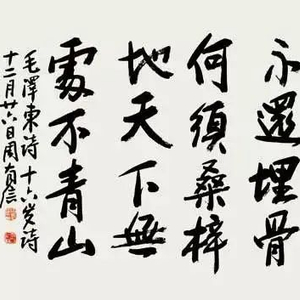 不還埋骨
何須桑梓
地天下無
處不青山
毛澤東詩十六岁詩
十二月廿六日周